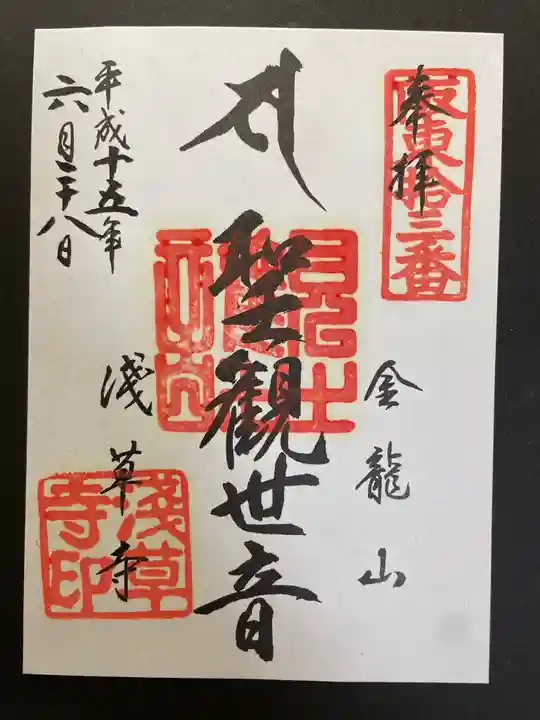 奉拝
坂東拾三番
金龍山
聖觀世音
淺草寺
淺草寺印
平成十五年
六月二十八日